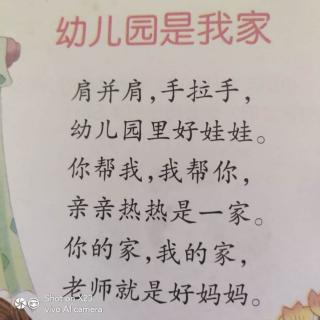 幼儿园是我家
肩并肩,手拉手,
幼儿园里好娃娃。
你帮我,我帮你,
亲亲热热是一家。
你的家,我的家,
老师就是好妈妈。
Shot on X23
vivo AI camera